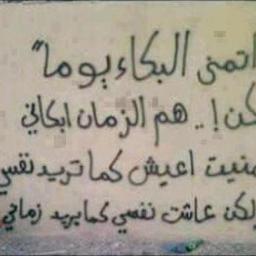 اتمنى البكاء يوما"
كن !.. هم الزمان ابكاني
منيت اعيش كما تريد نفسي
ولكن عاشت نفسي كما يريد زماني